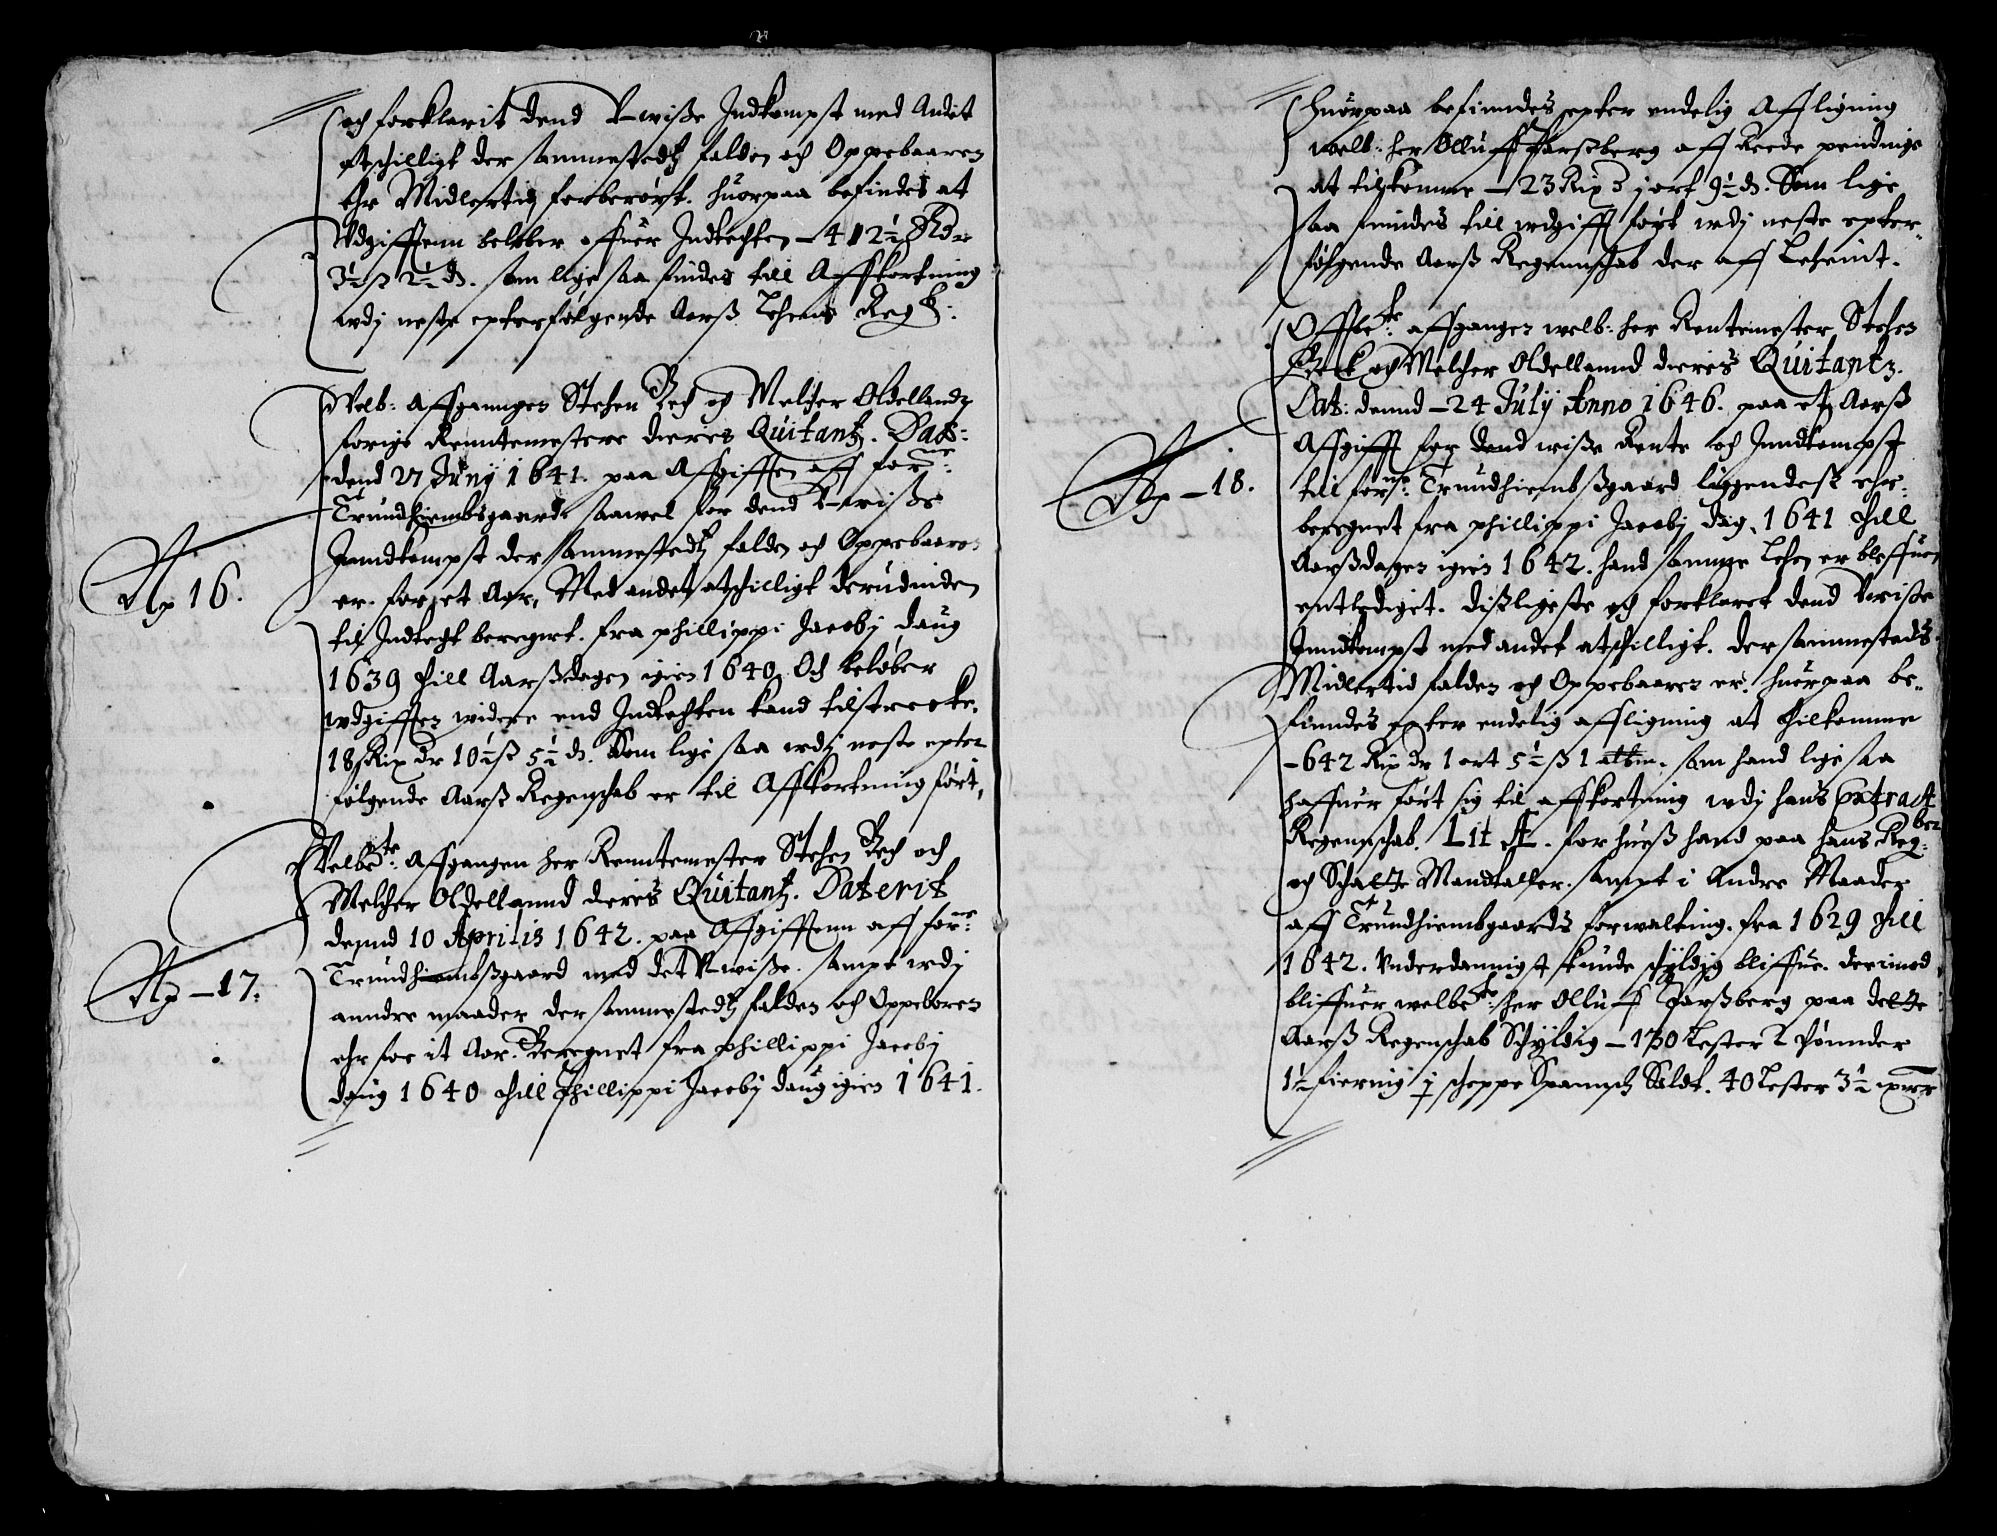 och forklarit dend Uwisse Indkompst med Andit
atschilligt der sammestedtz falden och Oppebaaren
ehr Midlertid forberørt. Huorpaa befindes at
Udgifftenn beløber offuer Indtechten – 412½ Rdr
3½ ß 2½ d. som lige saa findes till Affkortning
udj neste epterfølgende Aars Lehens Regsk:
Welb: Affgangen Stehen Bech og Melcher Oldellandz
forige Renntemestere dieris Quitantz. Dat:
dend 27 Junij 1641. paa Affgifften aff forne:
Trundhiembsgaard saauel for dend Uwisse
Inndkompst der sammestedtz falden och Oppebaaren
er for et Aar, Med andet atschilligt derudinden
til Indtecht beregnet. fra Phillippi Jacobj daug
1639 Till Aarsdagen igien 1640. Och beløber
udgifften widere end Indtechten kand tilstrecke.
18 Rix dr 10½ ß 5½ d. Som lige saa udj neste epter
følgende Aars Regenschab er til Affkortning ført.
N⁰ 16.
Welbte: Affgangen her Renntemester Stehen Bech och
Melcher Oldellannd deris Quitantz. Daterit
dennd 10 Aprilis 1642. paa Affgifftenn aff forne:
Trundhiembsgaard med det Uwisse. sampt udj
anndre maader der sammestedtz falden och Oppeboren
ehr for it Aar. Beregnet fra Phillippi Jacobj
daug 1640 Till Phillippi Jacobj daug igien 1641.
N⁰ – 17.
Huorpaa befinndes epter endelig Affligning
welb: her Olluff Parsberg aff Reede pendinge
at tilkomme – 23 Rix 3 j ort 9½ d. Som lige
saa findes till udgifft ført udj neste epter-
følgende Aars Regennschab der aff Lehenit.
Offbte: affgangen welb: her Rentemester Stehen
Beck og Melcher Oldellannd dieris Quitantz.
Dat: dennd – 24 Julij Anno 1646. paa et Aars
Affgifft for dend wisse Rente och Inndkompst
till forne: Trundhiembsgaard liggendes ehr
beregnet fra Phillippi Jacobj dag, 1641 Till
Aarsdagen igien 1642. hand samme Lehen er bleffuen
entlediget. disligeste och forklaret dend Uwisse
Inndkompst med andet atschilligt. der sammesteds
Midlertid falden och Oppebaaren er. huorpaa be-
finndes epter endelig affligning at Tilkomme
– 642 Rix dr 1 ort 5½ ß 1 albm. som hand lige saa
haffuer ført sig til affkortning udj hans Extract
Regennschab. Lit A. for hues hand paa hans Regber:
och Schatte Mandtaller. sampt i Andre Maader
aff Trundhiembgaards forwalting. fra 1629 Till
1642. Underdannigst kunde schyldig bliffue. derimod
bliffuer welbte: her Olluff Parsberg paa dette
Aars Regenschab Schyldig – 130 Lester 2 Pønnder
1½ fiernig j scheppe Spannsch Saldt. 40 Lester 3½
N⁰ – 18.